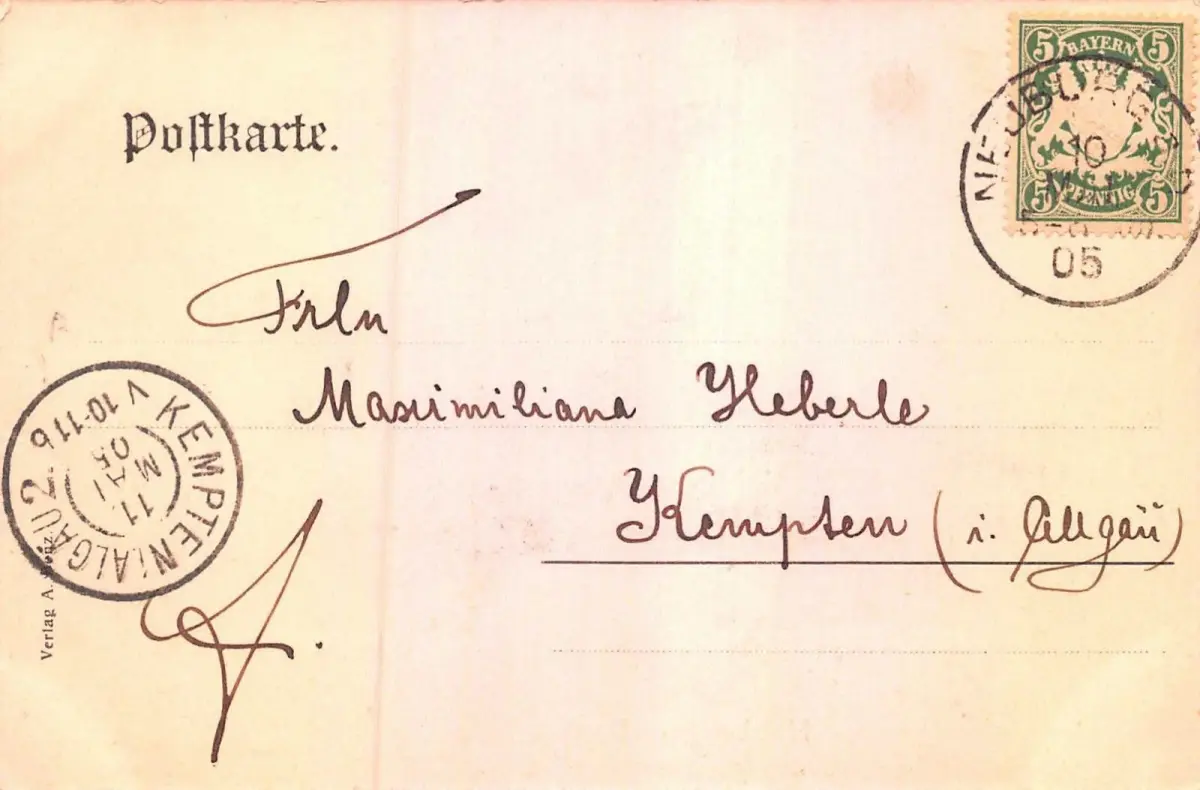 Postkarte.
5 BAYERN 5
5 PFENNIG 5
NEUBURG
10
MAI
05
Frln
Maximiliana Heberle
Kempten (i. Allgäu)
KEMPTEN i/ALGÄU 2.
11
MAI
05
V 10-11 b
Verlag A.